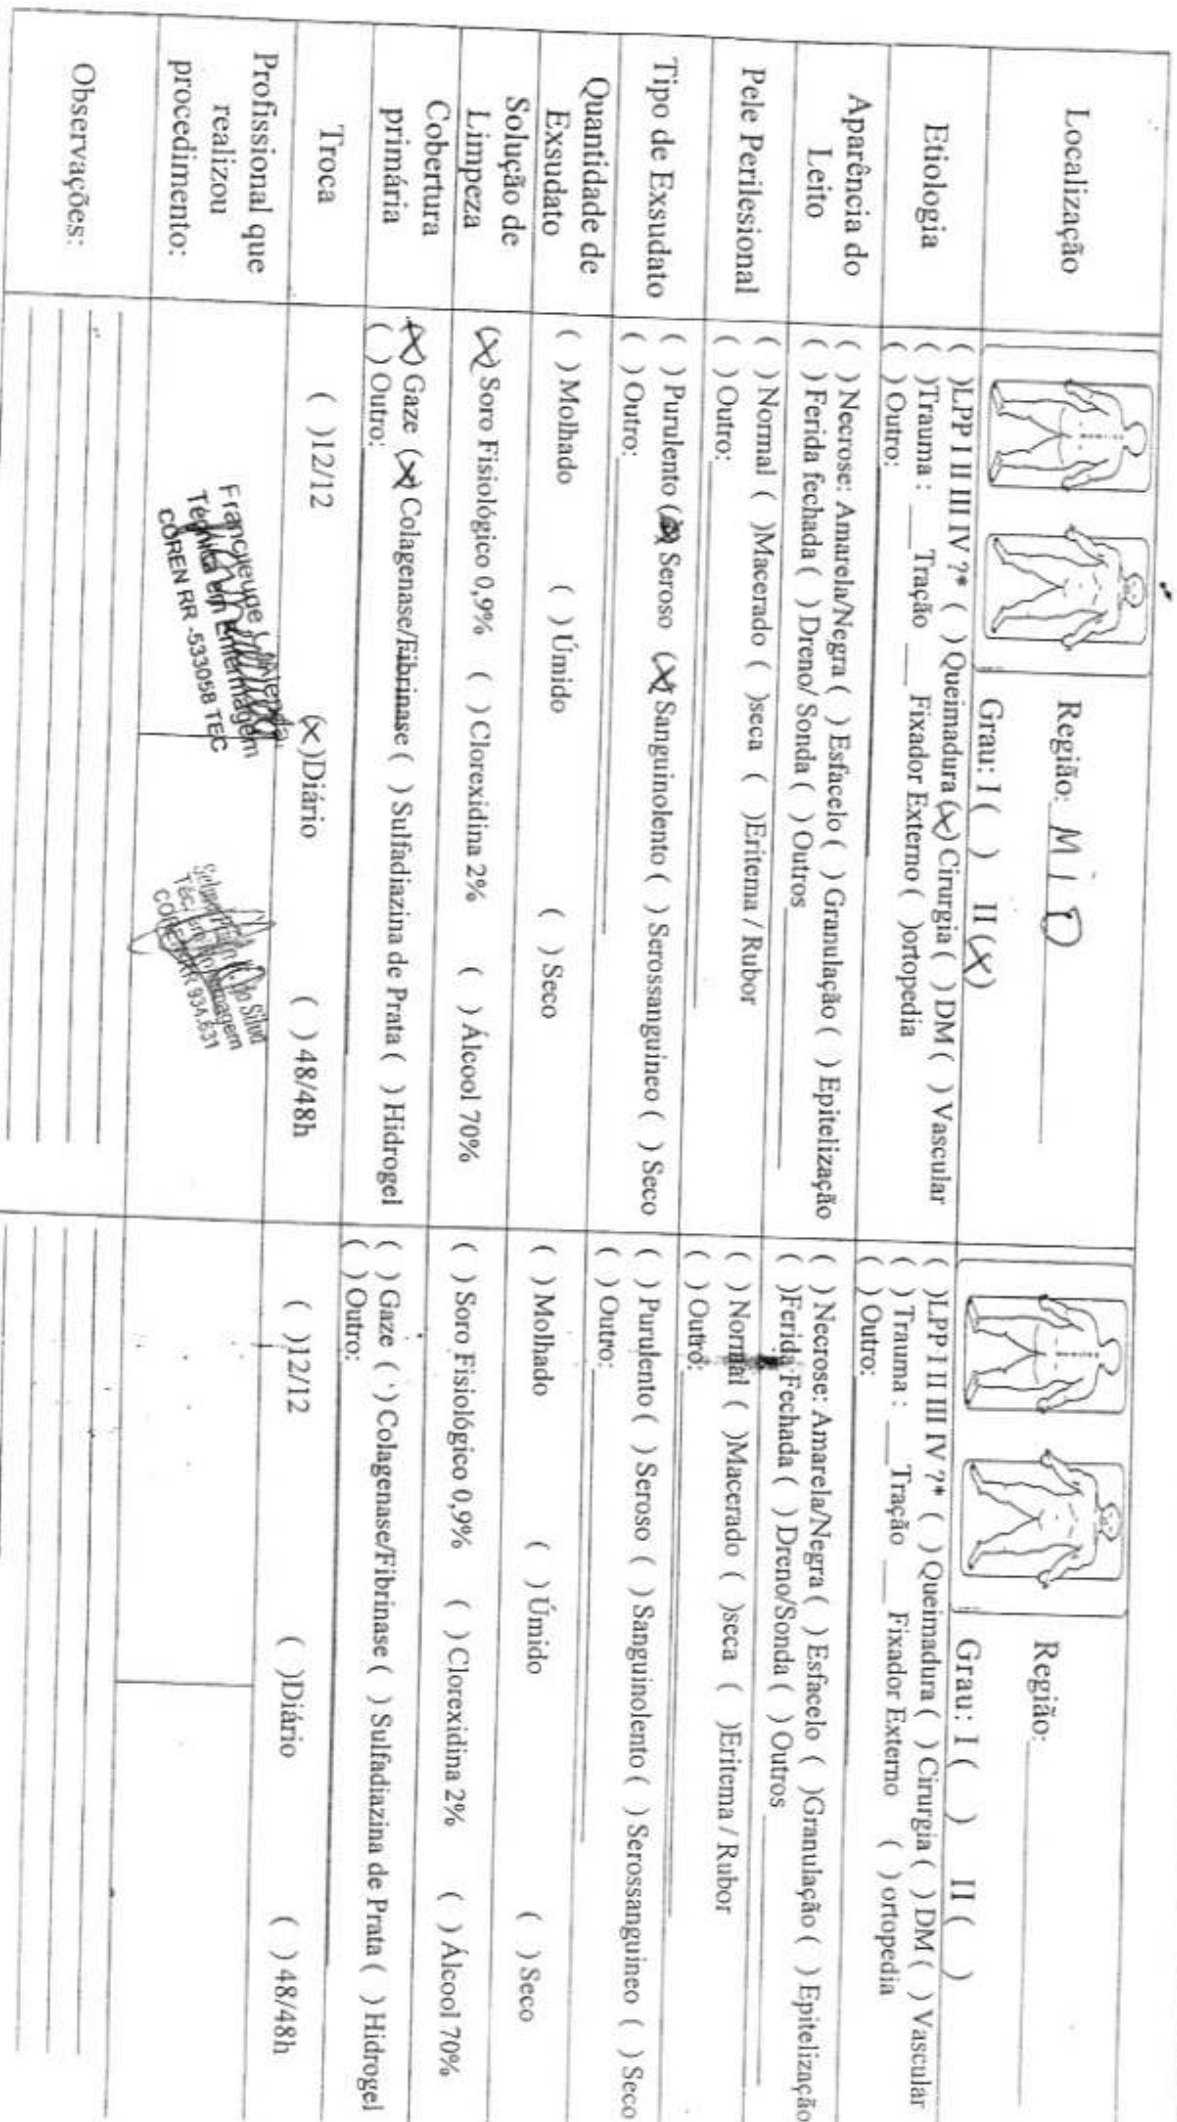 Localização
Região: M I D
Grau: I ( ) II (X)
Região:
Grau: I ( ) II ( )
Etiologia
( )LPP I II III IV ?* ( )Queimadura (X) Cirurgia ( ) DM ( ) Vascular
( )Trauma : ___Tração ___ Fixador Externo ( )ortopedia
( ) Outro:
( )LPP I II III IV ?* ( ) Queimadura ( ) Cirurgia ( ) DM ( ) Vascular
( ) Trauma : ___Tração ___ Fixador Externo ( ) ortopedia
( ) Outro:
Aparência do
Leito
( ) Necrose: Amarela/Negra ( ) Esfacelo ( ) Granulação ( ) Epitelização
( ) Ferida fechada ( ) Dreno/ Sonda ( ) Outros
( ) Necrose: Amarela/Negra ( ) Esfacelo ( )Granulação ( ) Epitelização
( )Ferida Fechada ( ) Dreno/Sonda ( ) Outros
Pele Perilesional
( ) Normal ( )Macerado ( )seca ( )Eritema / Rubor
( ) Outro:
( ) Normal ( )Macerado ( )seca ( )Eritema / Rubor
( ) Outro:
Tipo de Exsudato
( ) Purulento ( ) Seroso (X) Sanguinolento ( ) Serossanguineo ( ) Seco
( ) Outro:
( ) Purulento ( ) Seroso ( ) Sanguinolento ( ) Serossanguineo ( ) Seco
( ) Outro:
Quantidade de
Exsudato
( ) Molhado ( ) Úmido ( ) Seco
( ) Molhado ( ) Úmido ( ) Seco
Solução de
Limpeza
(X) Soro Fisiológico 0,9% ( ) Clorexidina 2% ( ) Álcool 70%
( ) Soro Fisiológico 0,9% ( ) Clorexidina 2% ( ) Álcool 70%
Cobertura
primária
(X) Gaze (X) Colagenase/Fibrinase ( ) Sulfadiazina de Prata ( ) Hidrogel
( ) Outro:
( ) Gaze ( ) Colagenase/Fibrinase ( ) Sulfadiazina de Prata ( ) Hidrogel
( ) Outro:
Troca
( )12/12 (X)Diário ( ) 48/48h
( )12/12 ( )Diário ( ) 48/48h
Profissional que
realizou
procedimento:
Técnica em Enfermagem
COREN RR -533058 TEC
da Silva
Téc. em Enfermagem
COREN RR 934.631
Observações: